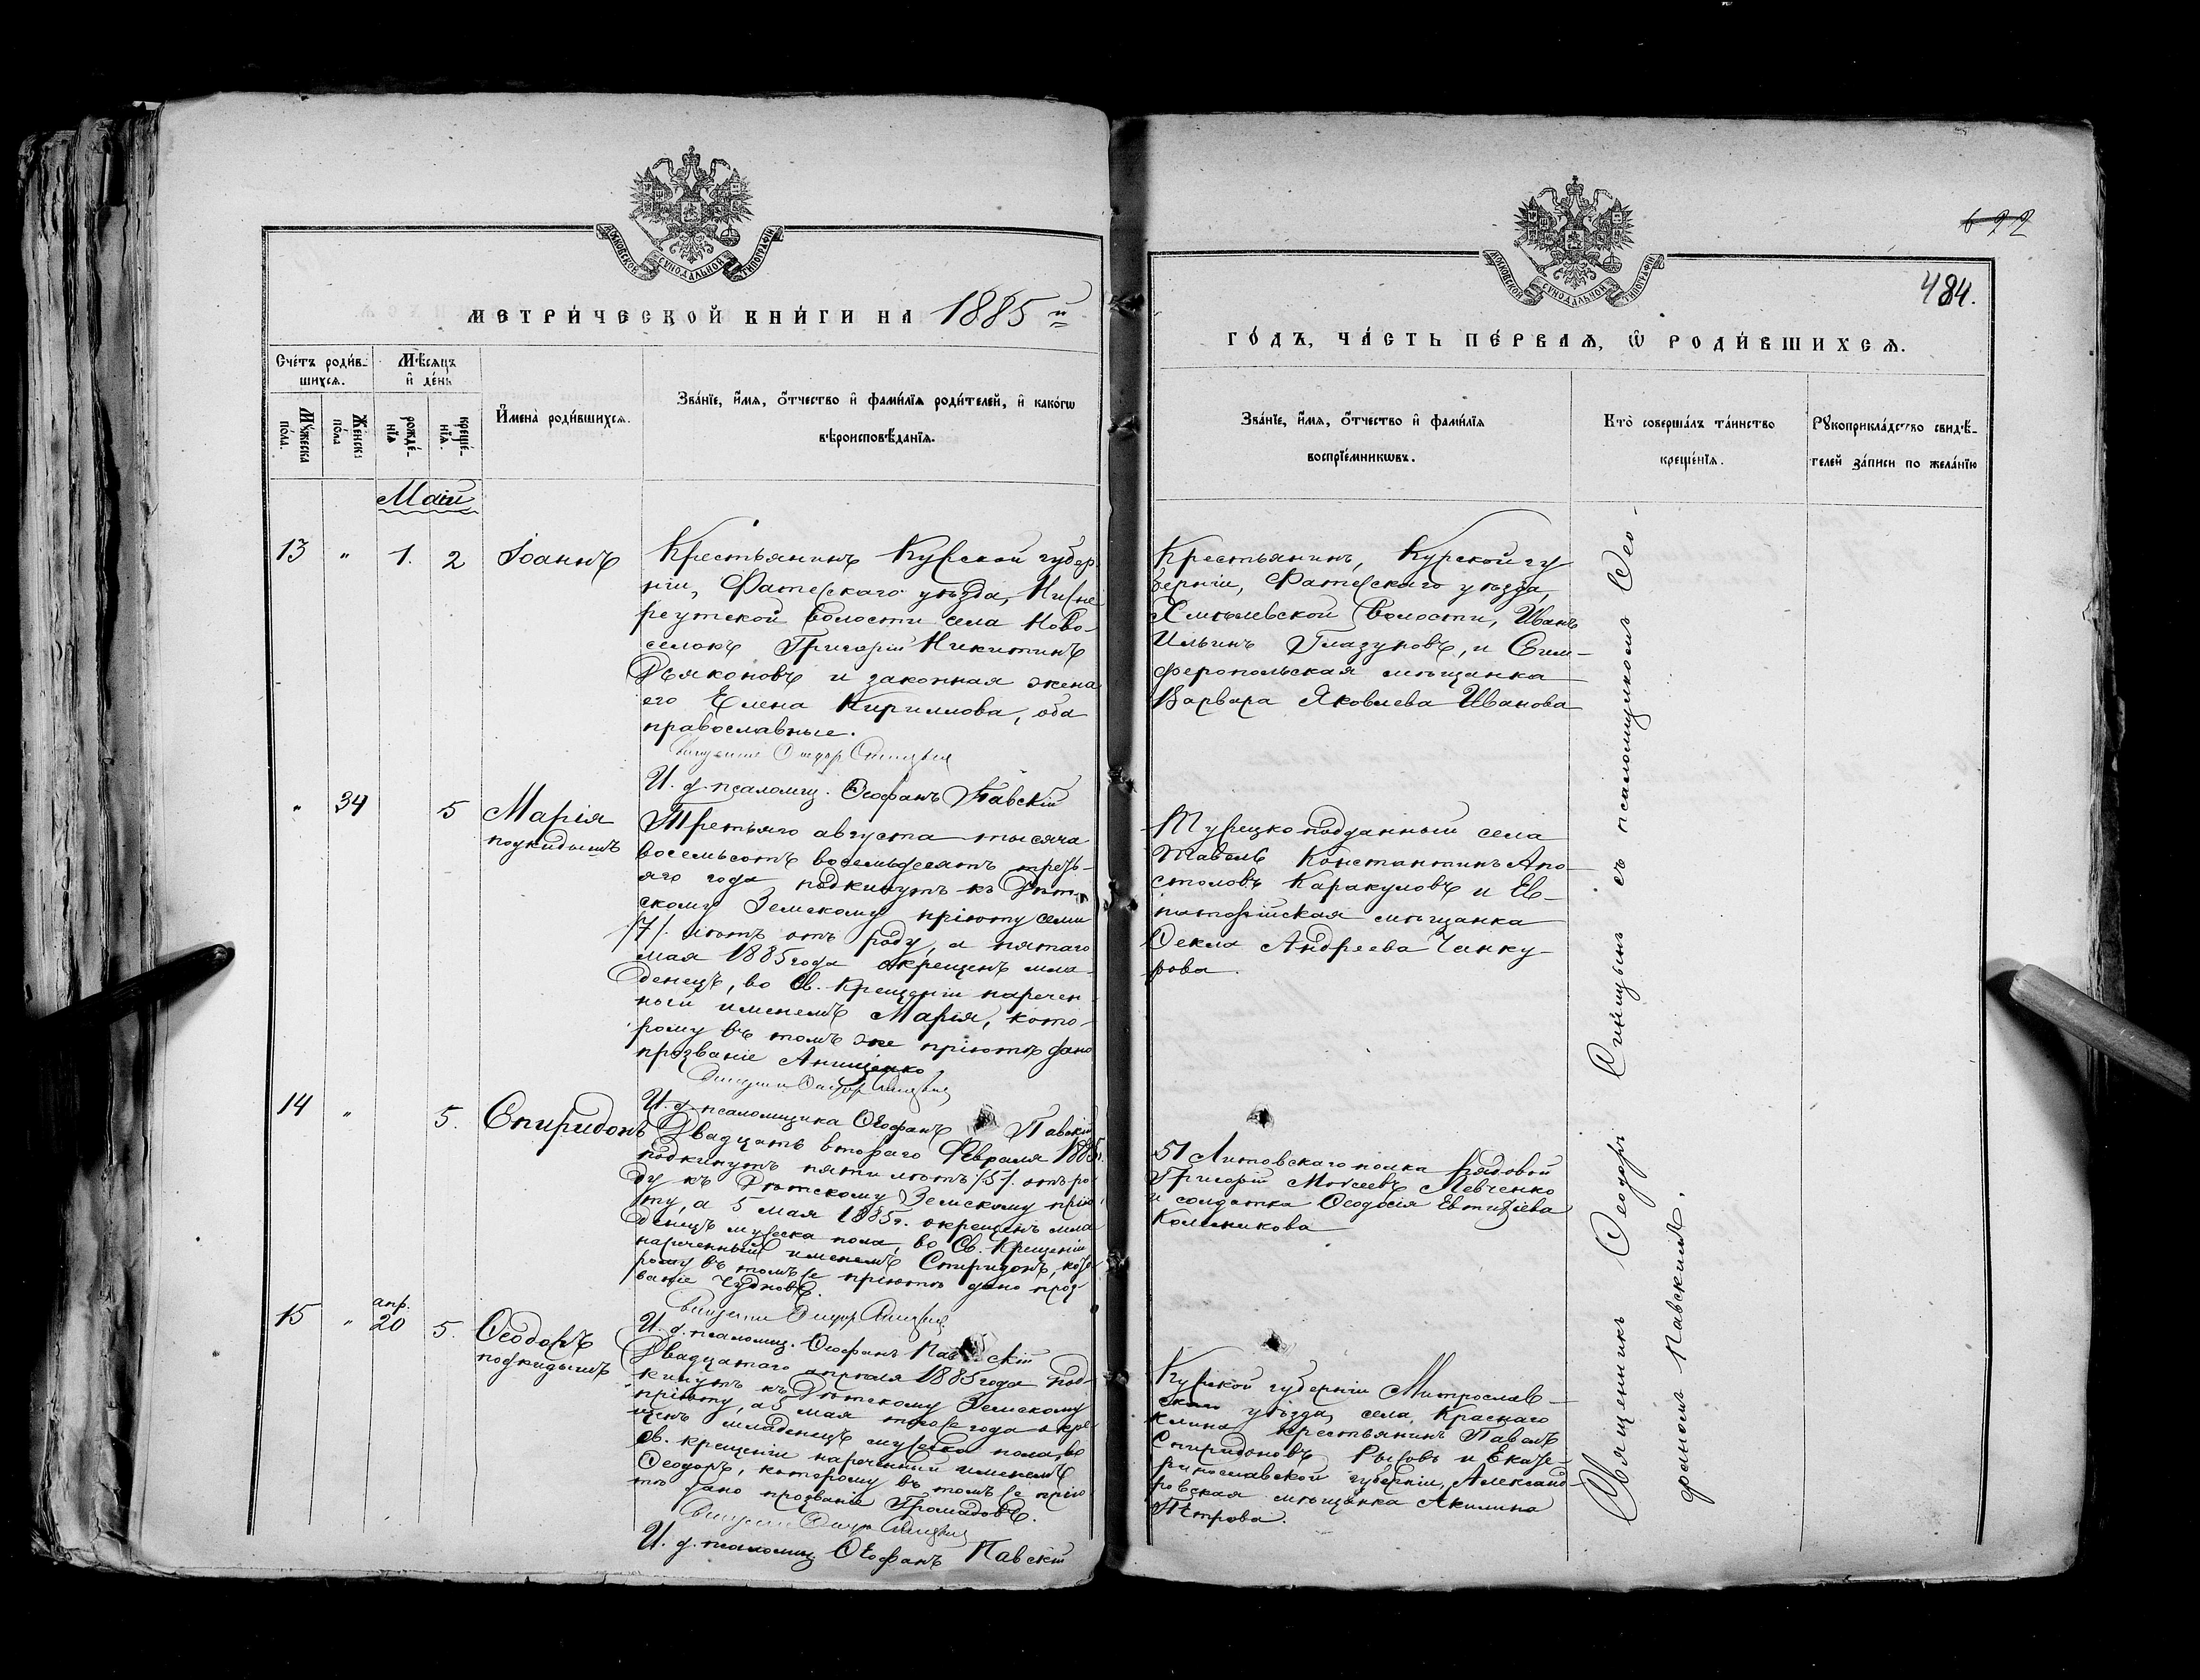 МОСКОВСКОЙ СУНОДАЛЬНОЙ ТИПОГРАФІИ
МЕТРИ́ЧЕСКОЙ КНИ́ГИ НА 1885 й
Сче́тъ роди́в-
шихсѧ.
Мѣ́сѧцъ
и҆ де́нь
Мꙋ́жеска
по́ла.
Же́нска
по́ла
рожде́-
нїѧ
креще́-
нїѧ.
И҆мена̀ роди́вшихсѧ.
Зва́нїе, и҆́мѧ, ѻ҆́тчество и҆ фами́лїѧ роди́телей, и҆ како́гѡ
вѣроисповѣ́данїѧ.
Май
13 " 1. 2 Іоаннъ
Крестьянинъ Курской губер
ніи, Фатежскаго уѣзда, Нижне
реутской волости села Ново-
селокъ Григорій Никитинъ
Дьяконовъ и законная жена
его Елена Кириллова, оба
православные.
И. д. псаломщ. Ѳеофанъ Павскій
" 34 5 Марія
подкидышъ
Третьяго августа тысяча
восемьсотъ восемьдесятъ треть-
яго года подкинутъ къ Дѣт-
скому Земскому пріюту семи
/7/ лѣтъ отъ роду, а пятаго
мая 1885 года окрещенъ мла-
денецъ, во Св. Крещеніи наречен-
ный именемъ Марія, кото-
рому въ томъ же пріютѣ дано
прозваніе Анищенко
И. д. псаломщика Ѳеофанъ Павскій
14 " 5. Спиридонъ
Двадцать втораго Февраля 1885 г.
подкинутъ пяти лѣтъ /5/ отъ ро
ду къ Дѣтскому Земскому прію
ту, а 5 мая 1885 г. окрещенъ мла
денецъ мужеска пола, во Св. Крещеніи
нареченный именемъ Спиридонъ, кото
рому въ томъ же пріютѣ дано проз
ваніе Чудновъ.
И. д. псаломщ. Ѳеофанъ Павскій
15 " апр. 20 5. Ѳеодоръ
подкидышъ
Двадцатаго апрѣля 1885 года под-
кинутъ къ Дѣтскому Земскому
пріюту, а 5 мая того же года окре
щенъ младенецъ мужеска пола, во
Св. крещеніи нареченный именемъ
Ѳеодоръ, которому въ томъ же прію
тѣ дано прозваніе Громадовъ.
И. д. псаломщ Ѳеофанъ Павскій
МОСКОВСКОЙ СУНОДАЛЬНОЙ ТИПОГРАФІИ
484.
ГО́ДЪ, ЧА́СТЬ ПЕ́РВАѦ, Ѽ РОДИ́ВШИХСѦ.
Зва́нїе, и҆́мѧ, ѻ҆́тчество и҆ фами́лїѧ
воспрїе́мникѡвъ.
Кто̀ соверша́лъ та́инство
креще́нїѧ.
Рꙋкоприкла́дство свидѣ́-
телей за́писи по жела́нїю
Крестьянинъ, Курской гу
берніи, Фатежскаго уѣзда,
Хмѣлевской волости, Иванъ
Ильинъ Глазуновъ, и Сим-
феропольская мѣщанка
Варвара Яковлева Иванова
Турецкоподданный села
Константинъ Апо-
столовъ Каракуловъ и Ев-
паторійская мѣщанка
Ѳекла Андреева Чанку-
рова.
51 Литовскаго полка Рядовой
Григорій Моѵсеевъ Левченко
и солдатка Ѳеодосія Евтихіева
Колесникова
Курской губерніи
уѣзда, села Краснаго
клина крестьянинъ Павелъ
Спиридоновъ и Екате-
ринославской губерніи, Александ-
ровская мѣщанка Акилина
Петрова.
Священникъ Ѳеодоръ Синицынъ съ псаломщикомъ Ѳео-
фаномъ Павскимъ.